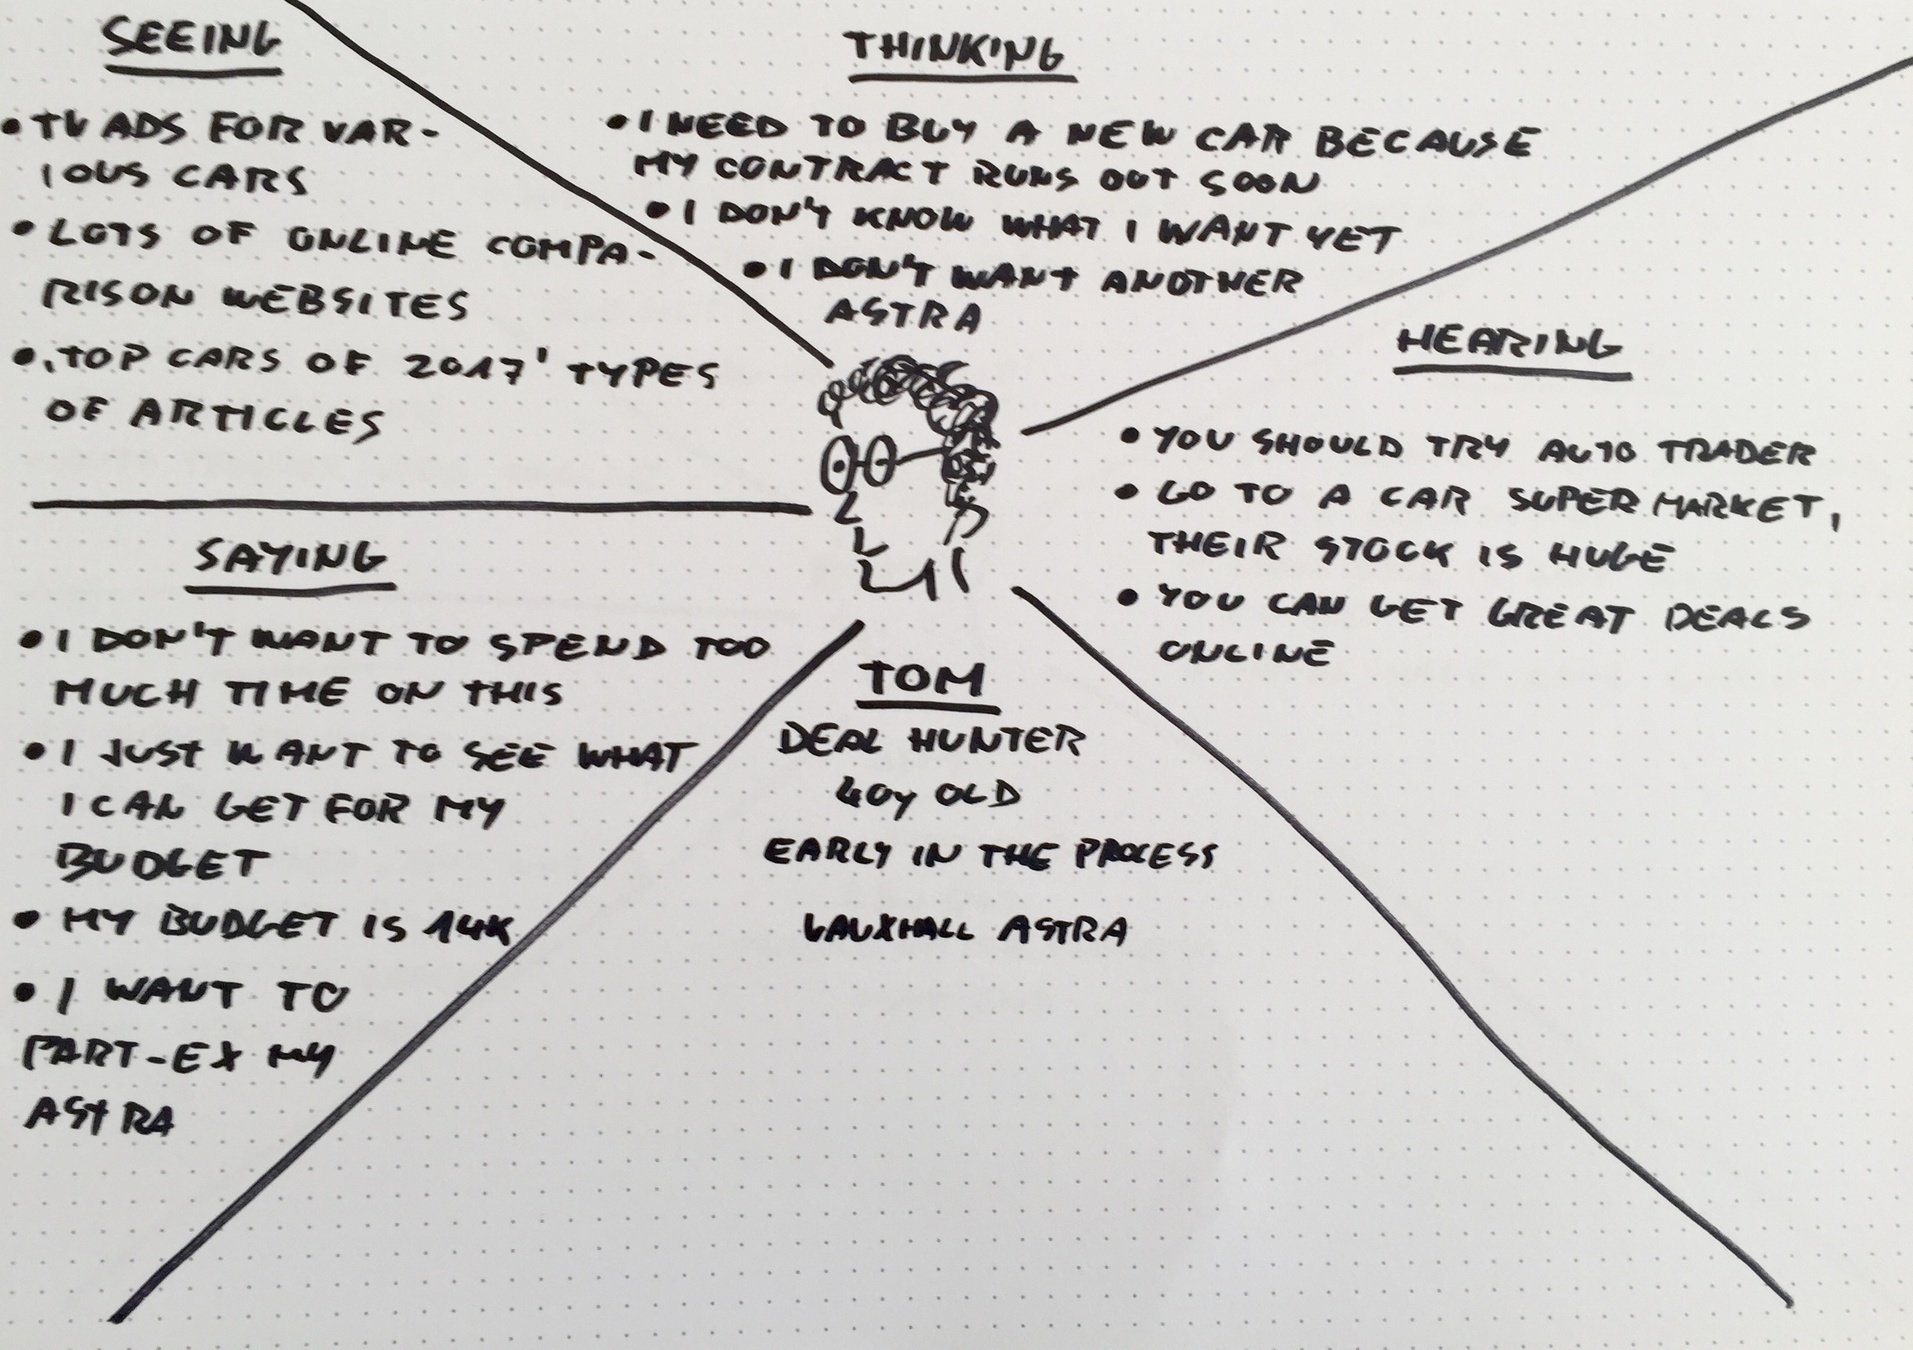 SEEING
• TV ADS FOR VAR-
IOUS CARS
• LOTS OF ONLINE COMPA-
RISON WEBSITES
• ‚TOP CARS OF 2017' TYPES
OF ARTICLES
THINKING
• I NEED TO BUY A NEW CAR BECAUSE
MY CONTRACT RUNS OUT SOON
• I DON'T KNOW WHAT I WANT YET
• I DON'T WANT ANOTHER
ASTRA
HEARING
• YOU SHOULD TRY AUTO TRADER
• GO TO A CAR SUPERMARKET,
THEIR STOCK IS HUGE
• YOU CAN GET GREAT DEALS
ONLINE
SAYING
• I DON'T WANT TO SPEND TOO
MUCH TIME ON THIS
• I JUST WANT TO SEE WHAT
I CAN GET FOR MY
BUDGET
• MY BUDGET IS 14K
• I WANT TO
PART-EX MY
ASTRA
TOM
DEAL HUNTER
40y OLD
EARLY IN THE PROCESS
VAUXHALL ASTRA